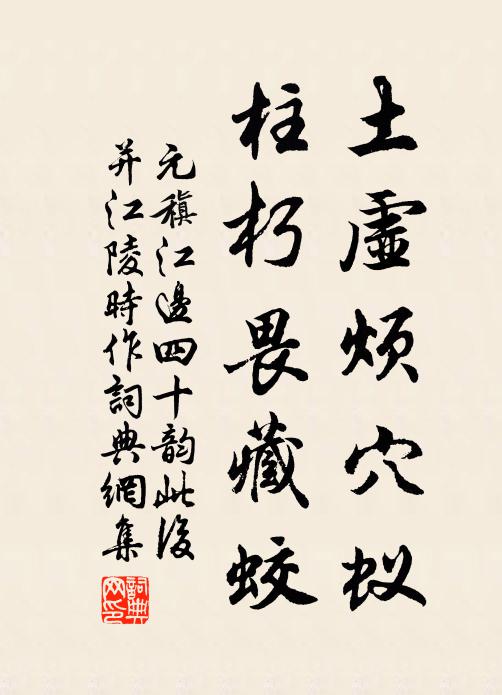 土虛煩穴蚁
柱朽畏藏蛟
元稹江邊四十韵此後
并江陵時作詞典網集
詞典網印